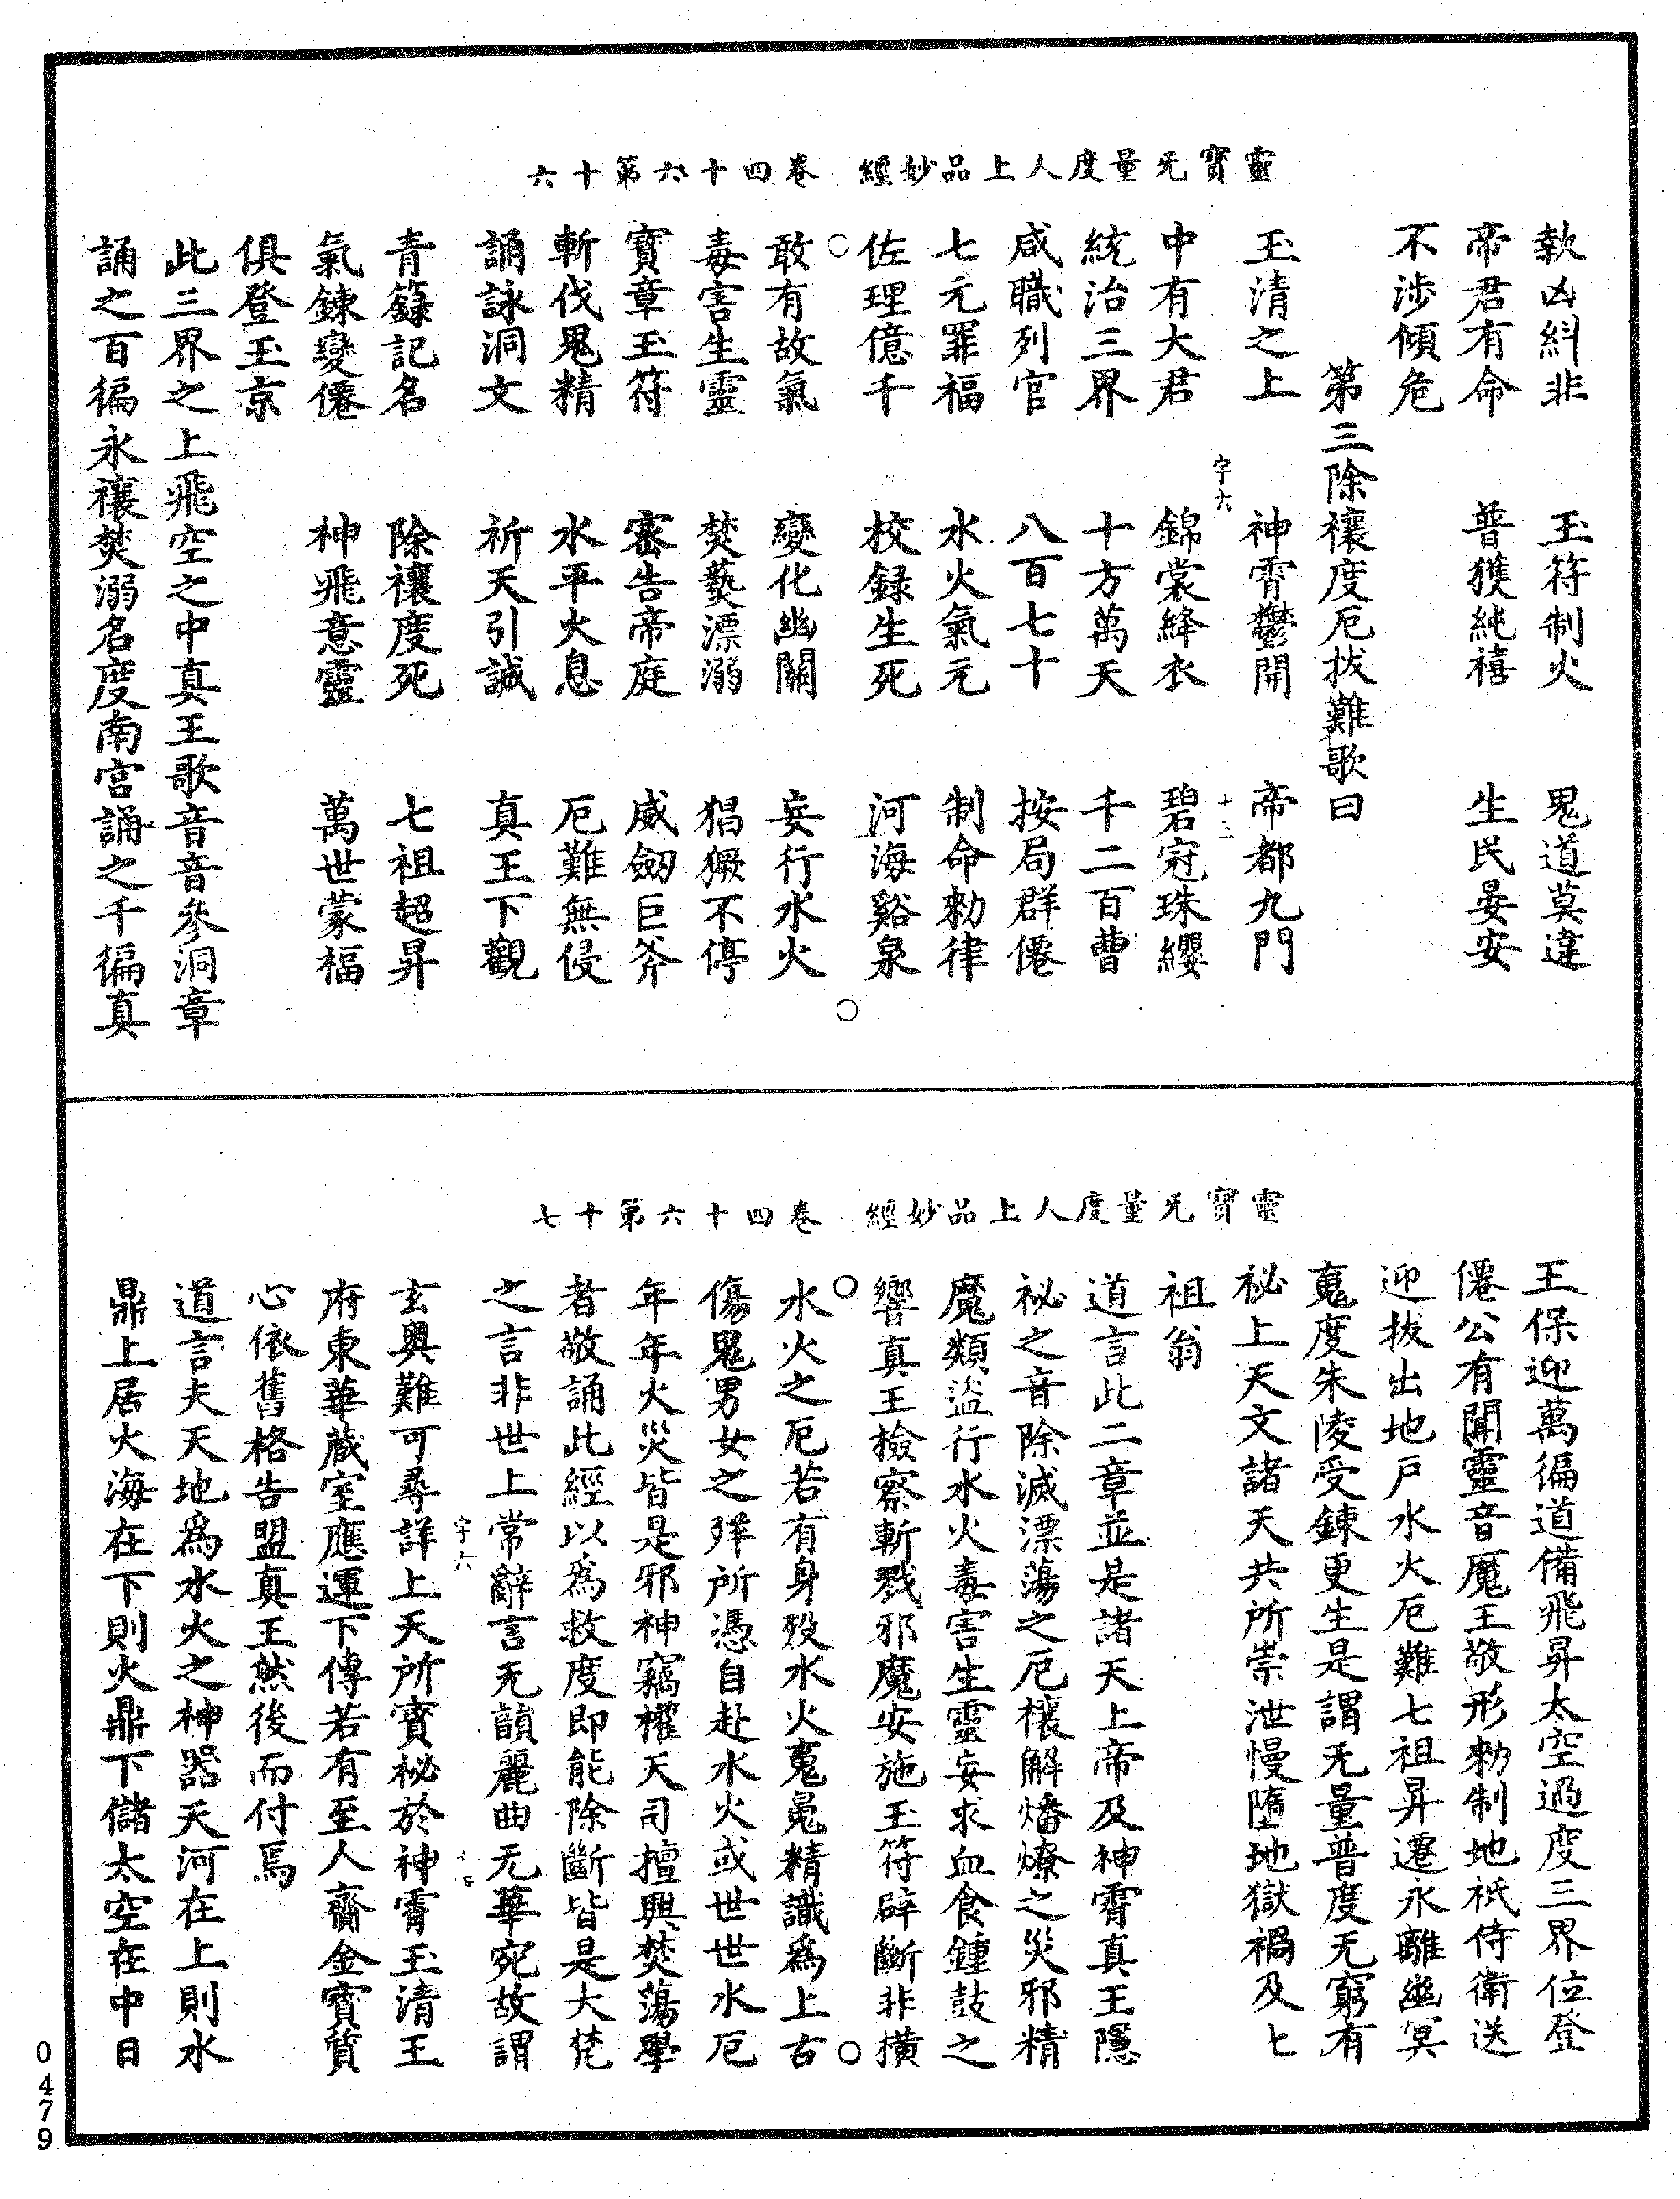 靈寶无量度人上品妙經 卷四十六第十六
執凶糾非 玉符制火 鬼道莫違
帝君有命 普獲純禧 生民晏安
不涉傾危
第三除禳度厄拔難歌曰
玉清之上 神霄鬱開 帝都九門
字六 十三
中有大君 錦裳絳衣 碧冠珠纓
統治三界 十方萬天 千二百曹
咸職列官 八百七十 按局群僊
七元罪福 水火氣元 制命勑律
佐理億千 校録生死 河海谿泉
敢有故氣 變化幽關 妄行水火
毒害生靈 焚爇漂溺 猖獗不停
寶章玉符 審告帝庭 威劔巨斧
斬伐鬼精 水平火息 厄難無侵
誦詠洞文 祈天引誠 真王下觀
青籙記名 除禳度死 七祖超昇
氣鍊變僊 神飛意靈 萬世蒙福
俱登玉京
此三界之上飛空之中真王歌音音參洞章
誦之百徧永禳焚溺名度南宮誦之千徧真
靈寶无量度人上品妙經 卷四十六第十七
王保迎萬徧道備飛昇太空過度三界位登
僊公有聞靈音魔王敬形勑制地祇侍衛送
迎拔出地戶水火厄難七祖昇遷永離幽冥
䰟度朱陵受鍊更生是謂无量普度无窮有
祕上天文諸天共所崇泄慢墮地獄禍及七
祖翁
道言此二章並是諸天上帝及神霄真王隱
祕之音除滅漂蕩之厄禳解燔燎之災邪精
魔類盜行水火毒害生靈妄求血食鍾鼓之
響真王撿察斬戮邪魔安施玉符辟斷非横
水火之厄若有身歿水火䰟㲋精識為上古
傷鬼男女之殃所憑自赴水火或世世水厄
年年火災皆是邪神竊權天司擅興焚蕩學
者敬誦此經以為救度即能除斷皆是大梵
之言非世上常辭言无韻麗曲无華宛故謂
字六
玄奥難可尋詳上天所寶祕於神霄玉清王
府東華蔵室應運下傳若有至人齎金寶質
心依舊格告盟真王然後而付焉
道言夫天地為水火之神器天河在上則水
鼎上居火海在下則火鼎下儲太空在中日
0479